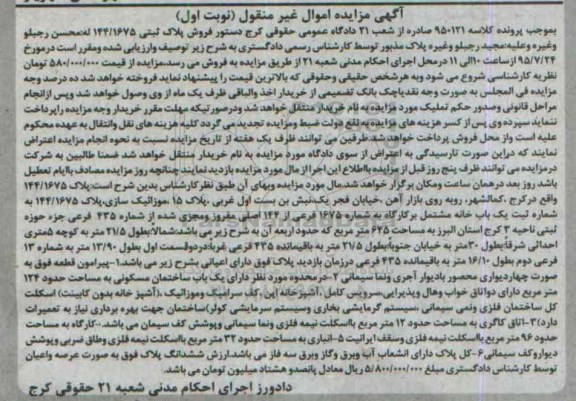 آگهی مزایده اموال غیر منقول (نوبت اول)
بموجب پرونده کلاسه ۹۵۰۱۲۱ صادره از شعب ۲۱ دادگاه عمومی حقوقی کرج دستور فروش پلاک ثبتی ۱۴۴/۱۶۷۵ له:محسن رجبلو
وغیره وعلیه:مجید رجبلو وغیره پلاک مذبور توسط کارشناس رسمی دادگستری به شرح زیر توصیف وارزیابی شده ومقرر است درمورخ
۹۵/۷/۲۴ ازساعت ۱۰الی ۱۱ درمحل اجرای احکام مدنی شعبه ۲۱ از طریق مزایده به فروش می رسد.مزایده از قیمت ۵۸۰/۰۰۰/۰۰۰ تومان
نظریه کارشناسی شروع می شود وبه هرشخص حقیقی وحقوقی که بالاترین قیمت را پیشنهاد نماید فروخته خواهد شد ده درصد وجه
مزایده فی المجلس به صورت وجه نقدیاچک بانک تضمینی از خریدار اخذ والباقی ظرف یک ماه از وی وصول خواهد شد وپس ازانجام
مراحل قانونی وصدور حکم تملیک مورد مزایده به نام خریدار منتقل خواهد شد ودرصورتیکه مهلت مقرر خریدار وجه مزایده راپرداخت
ننماید سپرده وی پس از کسر هزینه های مزایده به نفع دولت ضبط ومزایده تجدید می گردد کلیه هزینه های نقل وانتقال به عهده محکوم
علیه است واز محل فروش پرداخت خواهد شد.طرفین می توانند ظرف یک هفته از تاریخ مزایده نسبت به نحوه انجام مزایده اعتراض
نمایند که دراین صورت تارسیدگی به اعتراض از سوی دادگاه مورد مزایده به نام خریدار منتقل خواهد شد ضمنا طالبین به شرکت
درمزایده می توانند ظرف پنج روز قبل از مزایده بااطلاع این اجرا از مال مورد مزایده بازدید نمایند چنانچه روز مزایده مصادف باایام تعطیل
باشد روز بعد درهمان ساعت ومکان برگزار خواهد شد.مال مورد مزایده وبهای آن طبق نظر کارشناس بدین شرح است:پلاک ۱۴۴/۱۶۷۵
واقع درکرج ،کمالشهر، روبه روی بازار آهن ،خیابان فجر یک،نبش بن بست اول غربی ،پلاک ۱۵ ،موزائیک سازی،پلاک ۱۴۴/۱۶۷۵ به
شماره ثبت یک باب خانه مشتمل برکارگاه به شماره ۱۶۷۵ فرعی از ۱۴۴ اصلی مفروز ومجزی شده از شماره ۴۳۵ فرعی جزء حوزه
ثبتی ناحیه ۳ کرج استان البرز به مساحت ۶۲۵ متر مربع که حدوداربعه آن به شرح زیر می باشد:شمالا:بطول ۲۱/۵ متر به کوچه ۵متری
احداثی شرقا:بطول ۳۰متر به خیابان جنوبا:بطول ۲۱/۵ متر به باقیمانده ۴۳۵ فرعی غربا:دردوقسمت اول بطول ۱۳/۹۰ متر به شماره ۱۳
فرعی دوم بطول ۱۶/۱۰ متر به باقیمانده ۴۳۵ فرعی درزمان بازدید پلاک فوق دارای اعیانی بشرح زیر می باشد.۱-پیرامون قطعه فوق به
صورت چهاردیواری محصور بادیوار آجری ونما سیمانی ۲-درمحدوه مورد نظر دارای یک باب ساختمان مسکونی به مساحت حدود ۱۲۴
متر مربع دارای دواتاق خواب وهال وپذیرایی،سرویس کامل ،آشپزخانه اپن کف سرامیک وموزائیک ،(آشپز خانه بدون کابینت) اسکلت
کل ساختمان فلزی ونمی سیمانی ،سیستم گرمایشی بخاری وسیستم سرمایشی کولر(ساختمان جهت بهره برداری نیاز به تعمیرات
دارد)۳-اتاق کاگری به مساحت حدود ۱۲ متر مربع بااسکلت نیمه فلزی ونما سیمانی وپوشش کف سیمان می باشد.۴-کارگاه به مساحت
حدود ۹۶ متر مربع بااسکلت نیمه فلزی وسقف ایرانیت ۵-انباری به مساحت حدود ۳۲ متر مربع بااسکلت نیمه فلزی وطاق ضربی وپوشش
دیواروکف سیمانی ۶-کل پلاک دارای انشعاب آب وبرق وگاز وبرق سه فاز می باشد.ارزش ششدانگ پلاک فوق به صورت عرصه واعیان
توسط کارشناس دادگستری مبلغ ۵/۸۰۰/۰۰۰/۰۰۰ ریال معادل پانصدو هشتاد میلیون تومان می باشد.
دادورز اجرای احکام مدنی شعبه ۲۱ حقوقی کرج